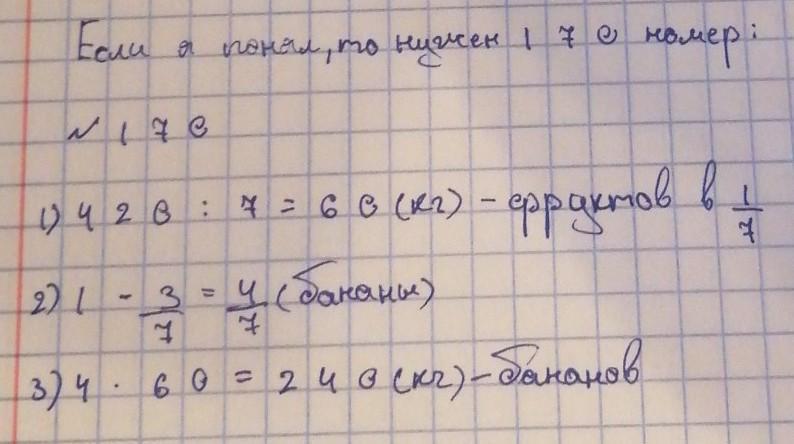 Если я понял, то нужен 170 номер:
№ 170
1) 420 : 7 = 60 (кг) - фруктов в 1/7
2) 1 - 3/7 = 4/7 (бананы)
3) 4 · 60 = 240 (кг) - бананов